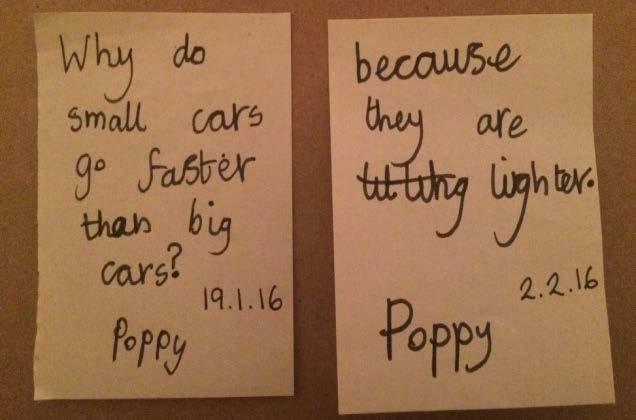 Why do
small cars
go faster
than big
cars?
19.1.16
Poppy
because
they are
lighter.
2.2.16
Poppy